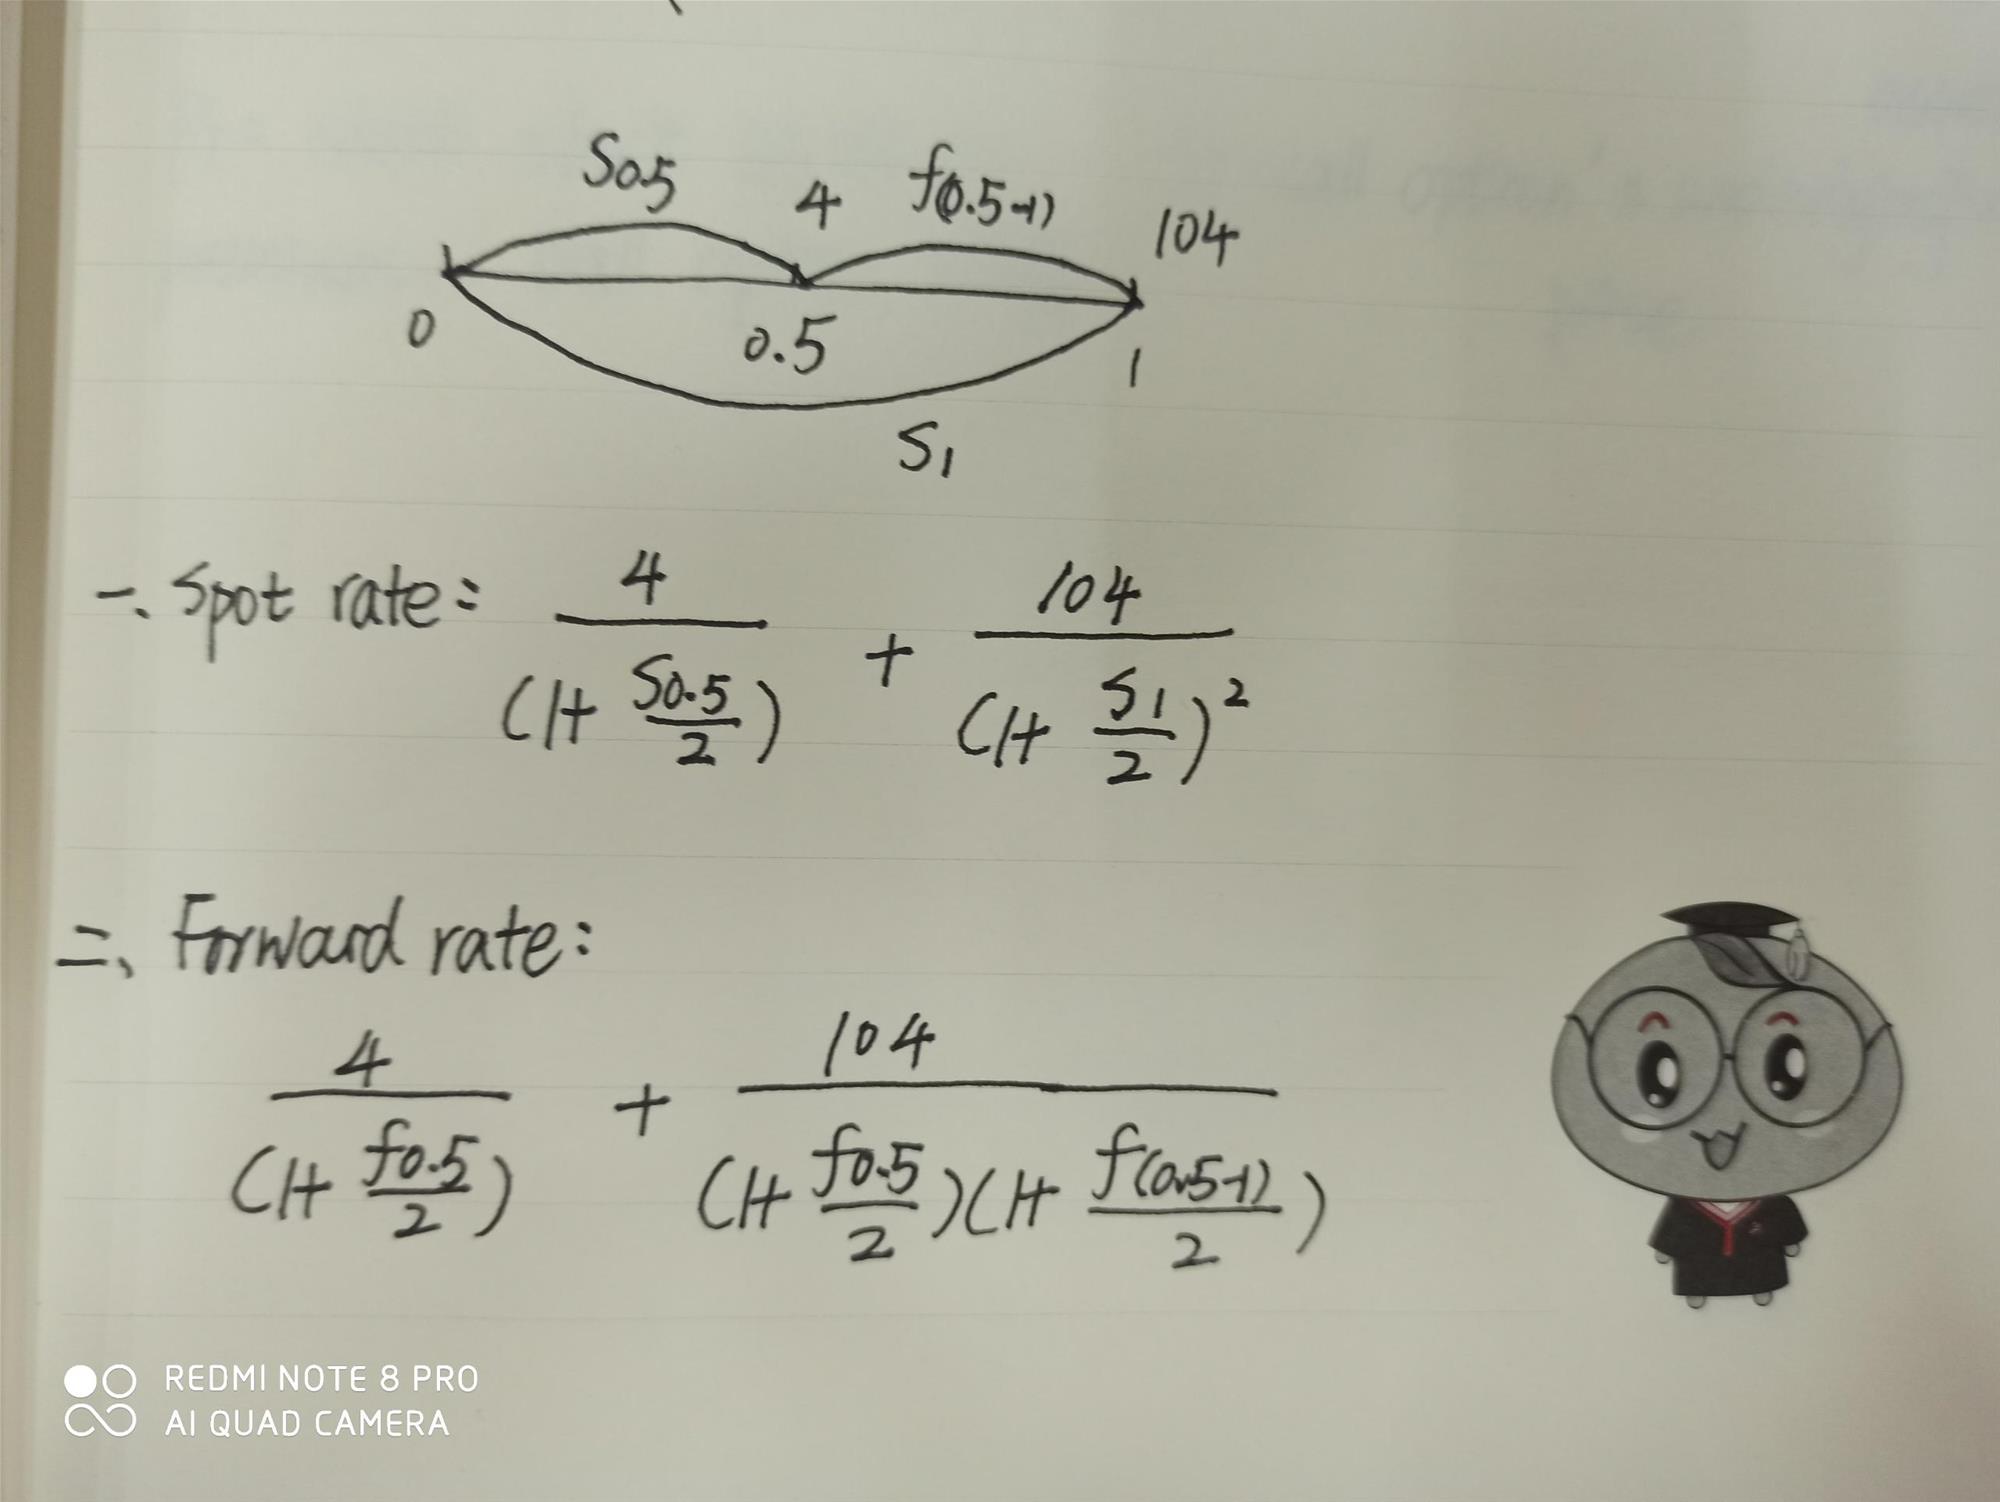 S0.5 4 f(0.5-1) 104
0 0.5 1
S1
一、Spot rate: 4/(1+ S0.5/2) + 104/(1+ S1/2)²
二、Forward rate:
4/(1+ f0.5/2) + 104/(1+ f0.5/2)(1+ f(0.5-1)/2)
REDMI NOTE 8 PRO
AI QUAD CAMERA